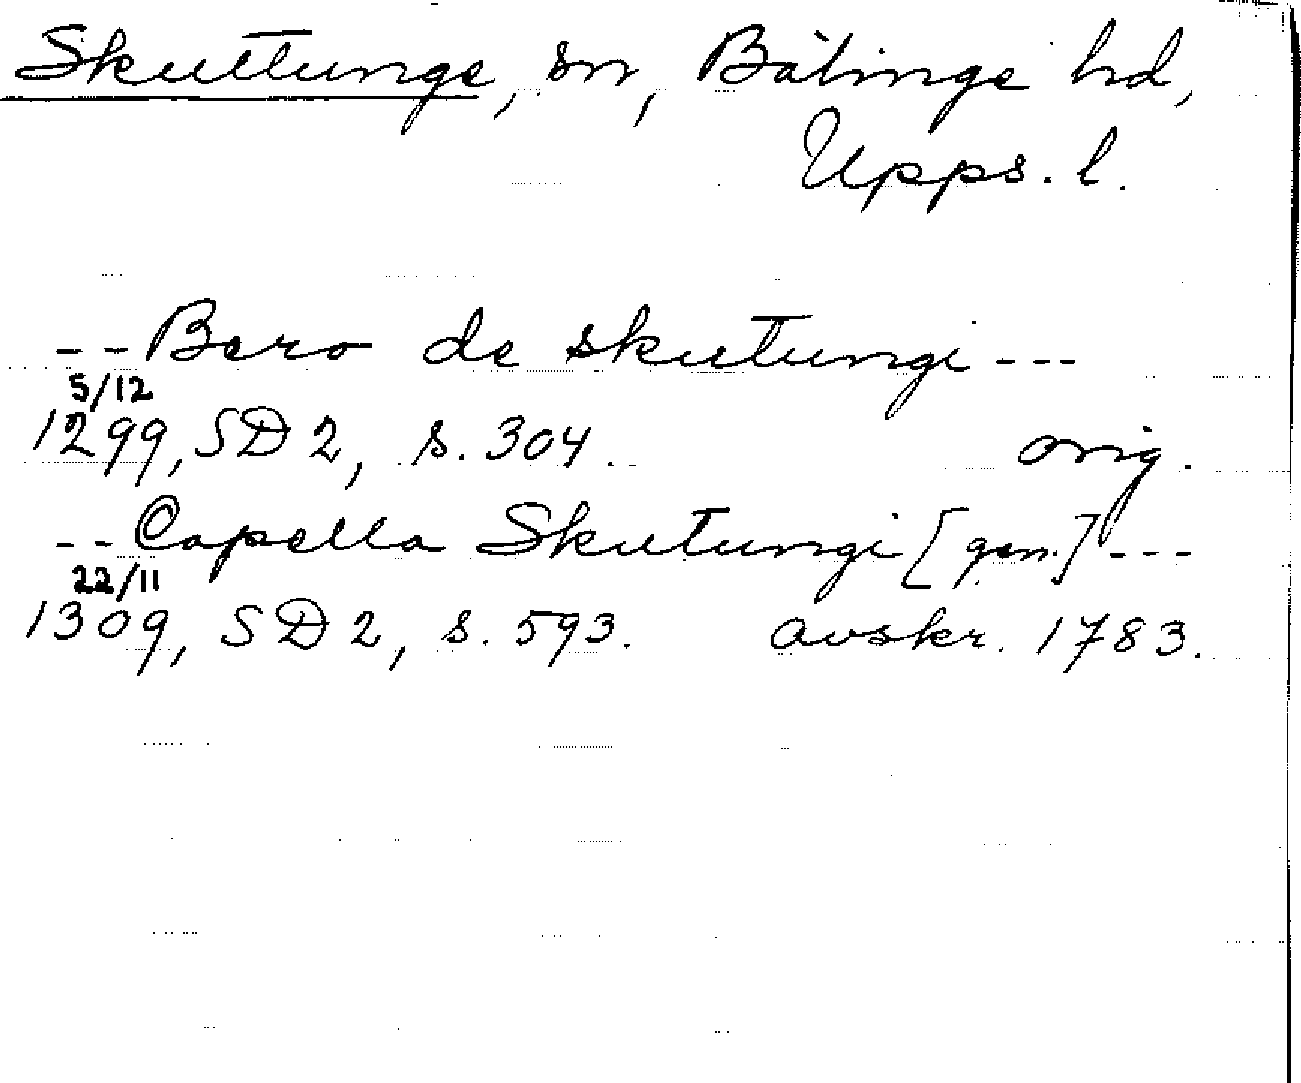 Skuttunge, sn, Bälinge hd,
Upps. l.
-- Bero de skutungi ---
5/12
1299, SD 2, s. 304. orig.
-- Capella Skutungi [gen.] ---
22/11
1309, SD 2, s. 593. avskr. 1783.